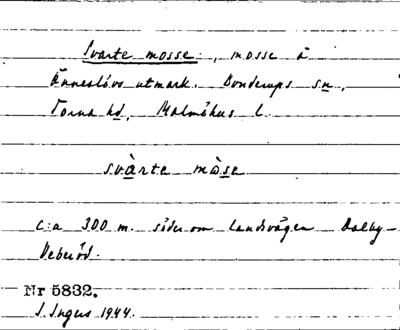 Svarte mosse, mosse å
Änneslövs utmark. Bonderups sn,
Torna hd, Malmöhus l.
svàrte mòse
c:a 300 m. söder om landsvägen Dalby-
Veberöd.
Nr 5832.
I. Ingers 1944.